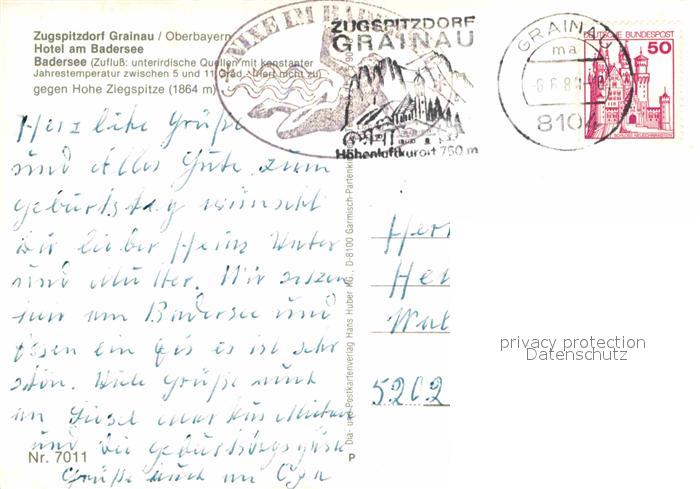 Zugspitzdorf Grainau / Oberbayern
Hotel am Badersee
Badersee (Zufluß: unterirdische Quellen mit konstanter
Jahrestemperatur zwischen 5 und 11 Grad, friert nicht zu)
gegen Hohe Ziegspitze (1864 m)
NIXE IM BADERSEE
ZUGSPITZDORF
GRAINAU
Höhenluftkurort 750 m
GRAINAU
ma
8104
DEUTSCHE BUNDESPOST
50
Herzliche Grüße
und Alles Gute zum
Geburtstag wünscht
Dir lieber Heinz Vater
und Mutter. Wir sitzen
hier am Badersee und
essen ein Eis es ist sehr
schön. Viele Grüße auch
an Liesel Markus Michael
und die Geburtstagsgäste
Grüße auch an Opa
Dia- und Postkartenverlag Hans Huber KG., D-8100 Garmisch-Partenk
Herr
He
Wal
5202
privacy protection
Datenschutz
Nr. 7011
P